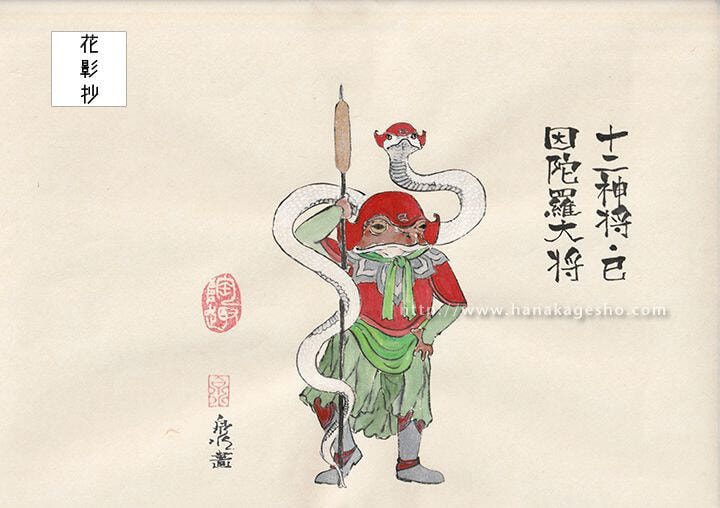 花影抄
十二神将・巳
因陀羅大将
http://www.hanakagesho.com